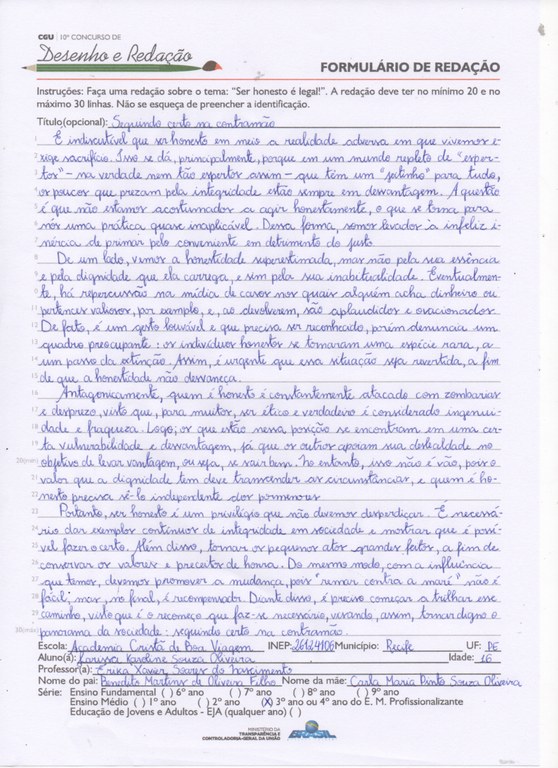 CGU | 10º CONCURSO DE
Desenho e Redação
FORMULÁRIO DE REDAÇÃO
Instruções: Faça uma redação sobre o tema: "Ser honesto é legal!". A redação deve ter no mínimo 20 e no
máximo 30 linhas. Não se esqueça de preencher a identificação.
Título(opcional): Seguindo certo na contramão
É indiscutível que ser honesto em meio a realidade adversa em que vivemos e-
xige sacrifício. Isso se dá, principalmente, porque em um mundo repleto de "esper-
tos" – na verdade nem tão espertos assim – que têm um "jeitinho" para tudo,
os poucos que prezam pela integridade estão sempre em desvantagem. A questão
é que não estamos acostumados a agir honestamente, o que se torna para
nós uma prática quase inaplicável. Dessa forma, somos levados a infeliz i-
nércia de primar pelo conveniente em detrimento do justo.
De um lado, vemos a honestidade superestimada, mas não pela sua essência
e pela dignidade que ela carrega, e sim pela sua inabitualidade. Eventualmen-
te, há repercussão na mídia de casos nos quais alguém acha dinheiro ou
pertences valiosos, por exemplo, e, ao devolverem, são aplaudidos e ovacionados.
De fato, é um gesto louvável e que precisa ser reconhecido, porém denuncia um
quadro preocupante: os indivíduos honestos se tornaram uma espécie rara, a
um passo da extinção. Assim, é urgente que essa situação seja revertida, a fim
de que a honestidade não desvaneça.
Antagonicamente, quem é honesto é constantemente atacado com zombarias
e desprezo, visto que, para muitos, ser ético e verdadeiro é considerado ingenui-
dade e fraqueza. Logo, os que estão nessa posição se encontram em uma cer-
ta vulnerabilidade e desvantagem, já que os outros apoiam sua deslealdade no
objetivo de levar vantagem, ou seja, se sair bem. No entanto, isso não é vão, pois o
valor que a dignidade tem deve transcender as circunstâncias, e quem é ho-
nesto precisa sê-lo independente dos pormenores.
Portanto, ser honesto é um privilégio que não devemos desperdiçar. É necessá-
rio dar exemplos contínuos de integridade em sociedade e mostrar que é possí-
vel fazer o certo. Além disso, tornar os pequenos atos grandes feitos, a fim de
conservar os valores e preceitos de honra. Do mesmo modo, com a influência
que temos, devemos promover a mudança, pois "remar contra a maré" não é
fácil; mas, no final, é recompensador. Diante disso, é preciso começar a trilhar esse
caminho, visto que é o recomeço que faz-se necessário, visando, assim, tornar digno o
panorama da sociedade: seguindo certo na contramão.
Escola: Academia Cristã de Boa Viagem INEP: 26124106 Município: Recife UF: PE
Aluno(a): Larissa Karoline Souza Oliveira Idade: 16
Professor(a): Erika Xavier Soares do Nascimento
Nome do pai: Benedito Martins de Oliveira Filho Nome da mãe: Carla Maria Pinto Souza Oliveira
Série: Ensino Fundamental ( ) 6º ano ( ) 7º ano ( ) 8º ano ( ) 9º ano
Ensino Médio ( ) 1º ano ( ) 2º ano (X) 3º ano ou 4º ano do E. M. Profissionalizante
Educação de Jovens e Adultos - EJA (qualquer ano) ( )
MINISTÉRIO DA
TRANSPARÊNCIA E
CONTROLADORIA-GERAL DA UNIÃO
BRASIL